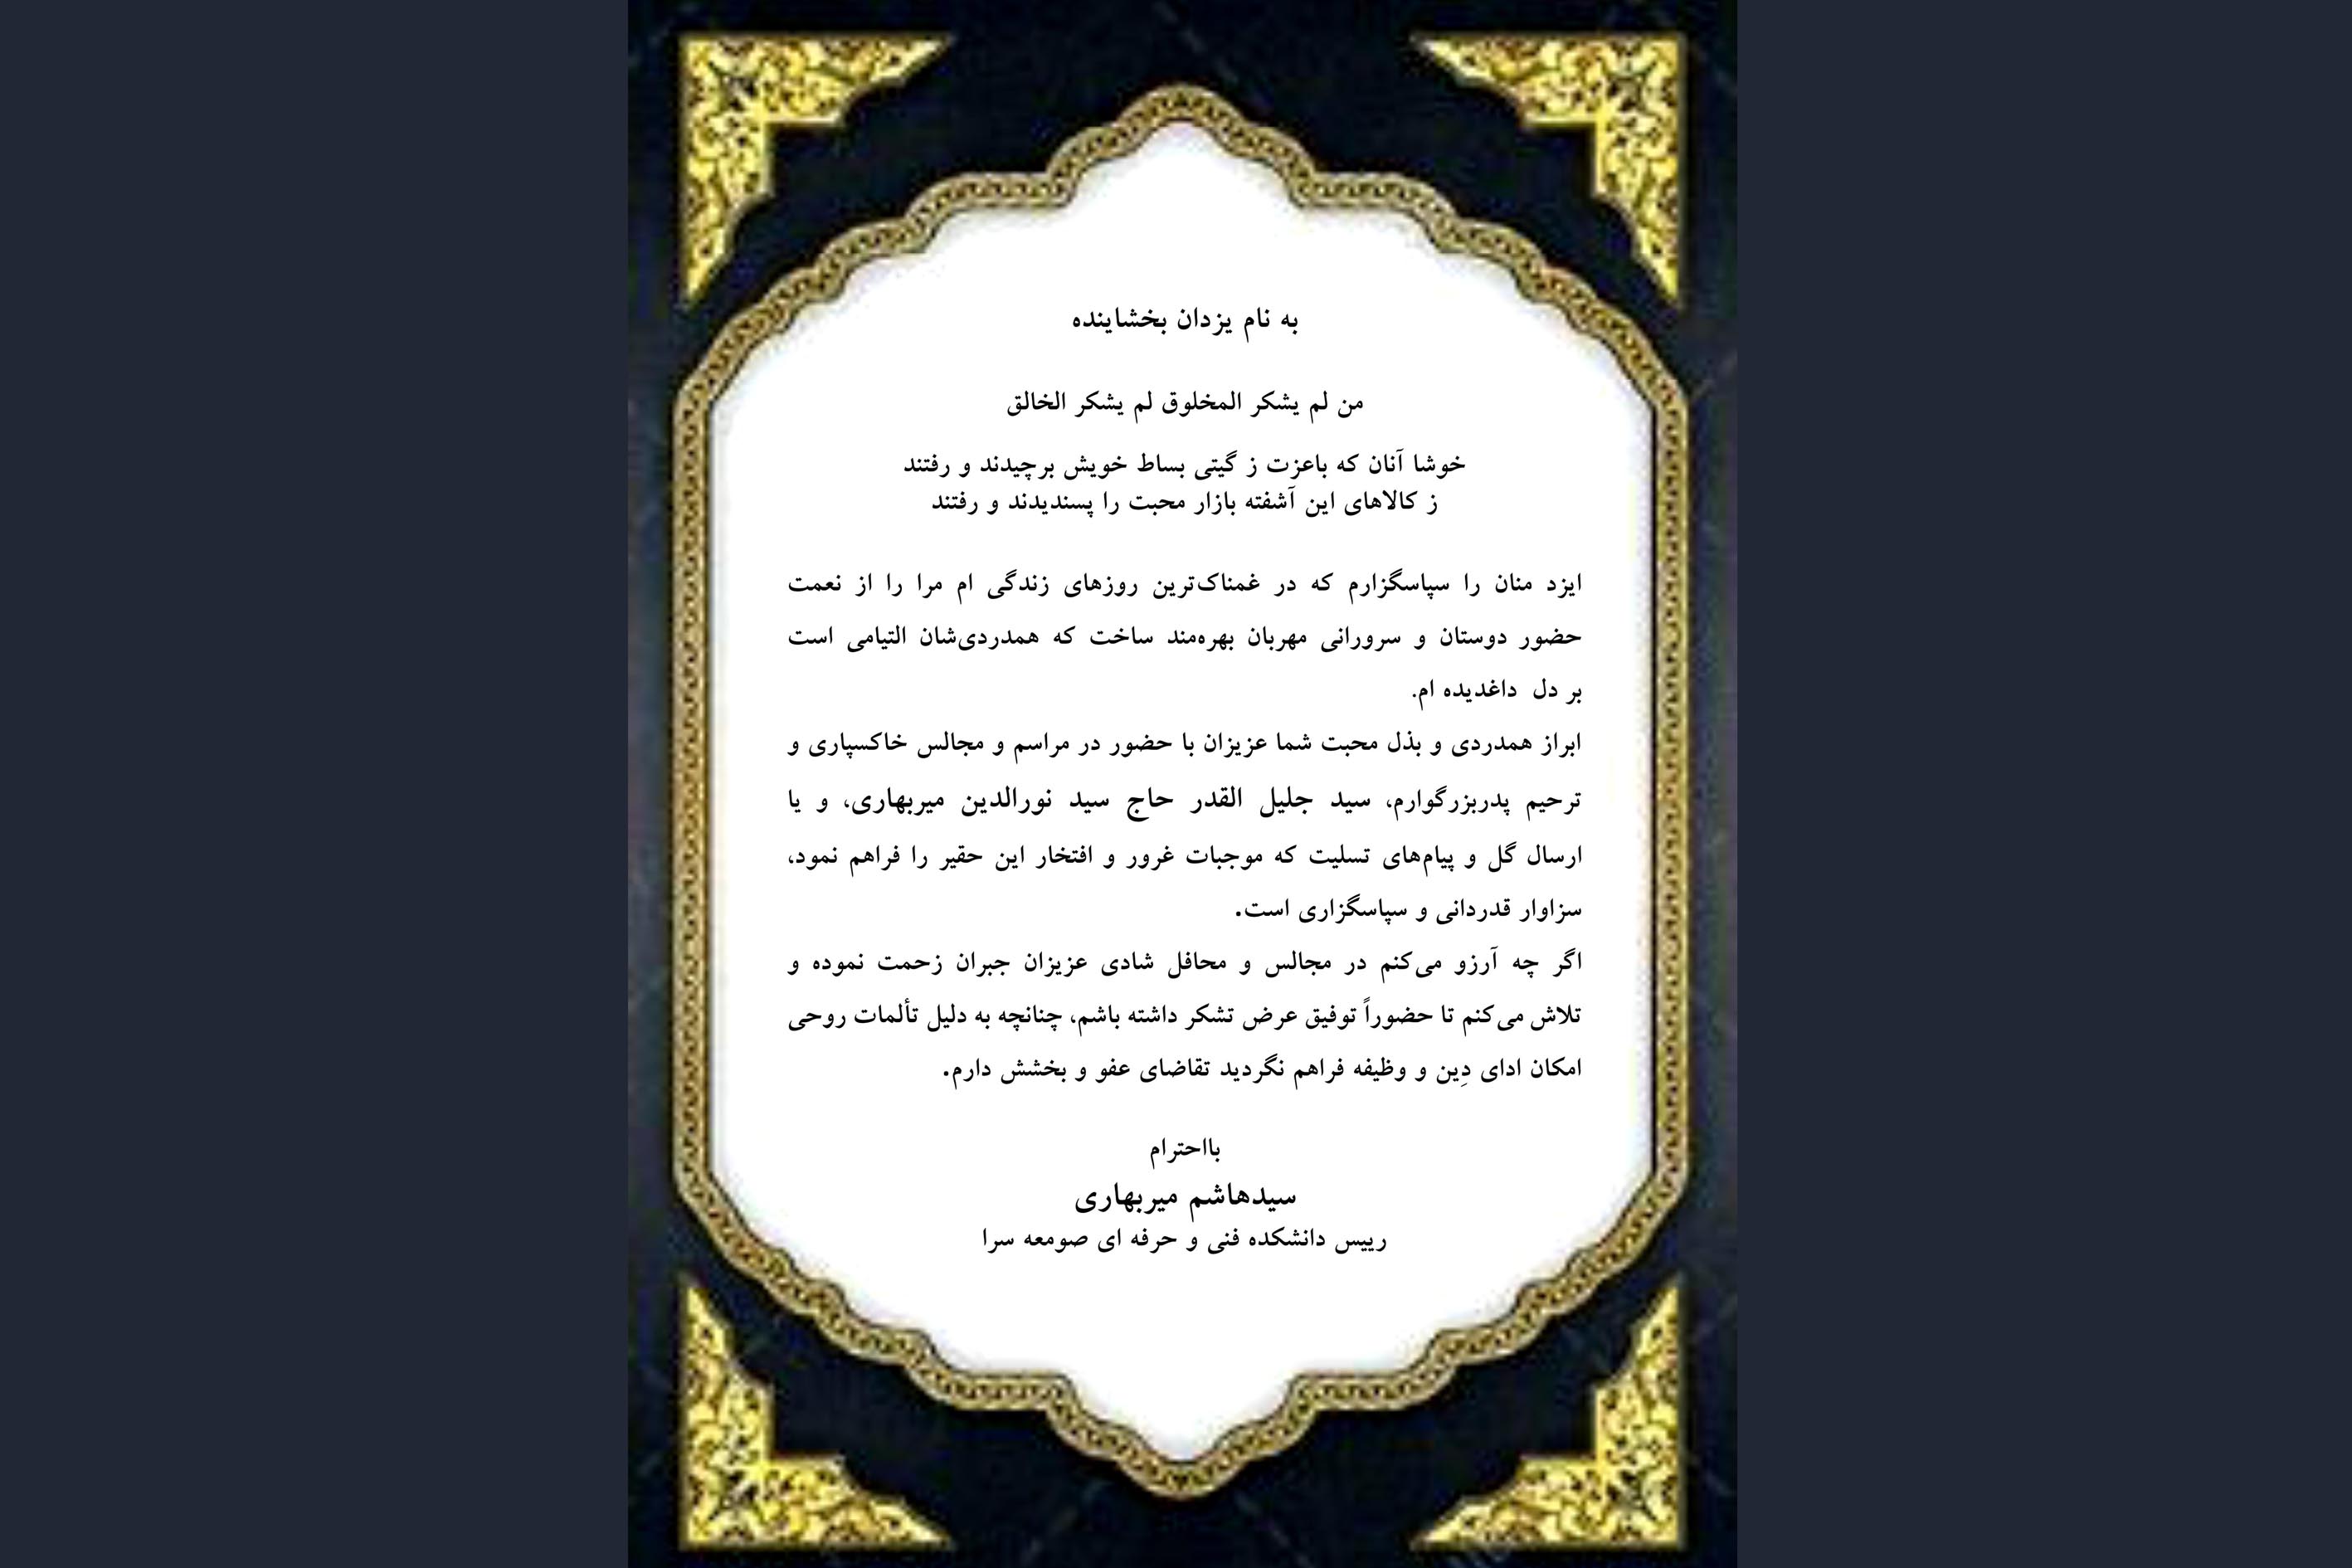 به نام یزدان بخشاینده
من لم یشکر المخلوق لم یشکر الخالق
خوشا آنان که باعزت ز گیتی بساط خویش برچیدند و رفتند
ز کالاهای این آشفته بازار محبت را پسندیدند و رفتند
ایزد منان را سپاسگزارم که در غمناک‌ترین روزهای زندگی ام مرا را از نعمت
حضور دوستان و سرورانی مهربان بهره‌مند ساخت که همدردی‌شان التیامی است
بر دل داغدیده ام.
ابراز همدردی و بذل محبت شما عزیزان با حضور در مراسم و مجالس خاکسپاری و
ترحیم پدربزرگوارم، سید جلیل القدر حاج سید نورالدین میربهاری، و یا
ارسال گل و پیام‌های تسلیت که موجبات غرور و افتخار این حقیر را فراهم نمود،
سزاوار قدردانی و سپاسگزاری است.
اگر چه آرزو می‌کنم در مجالس و محافل شادی عزیزان جبران زحمت نموده و
تلاش می‌کنم تا حضوراً توفیق عرض تشکر داشته باشم، چنانچه به دلیل تألمات روحی
امکان ادای دِین و وظیفه فراهم نگردید تقاضای عفو و بخشش دارم.
بااحترام
سیدهاشم میربهاری
رییس دانشکده فنی و حرفه ای صومعه سرا